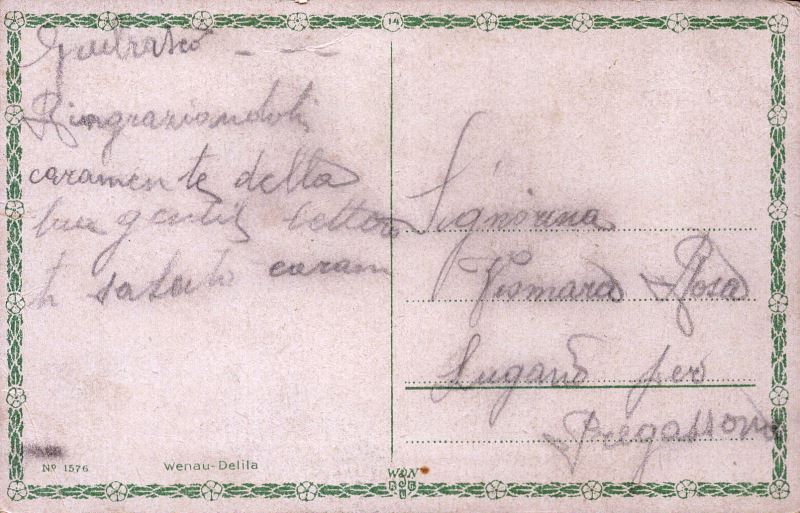 14
Ringraziandoti
caramente della
tua gentil lettera
ti saluto caram
Signorina
Vismara Rosa
Lugano per
Pregassona
Nº 1576
Wenau-Delila
W&N